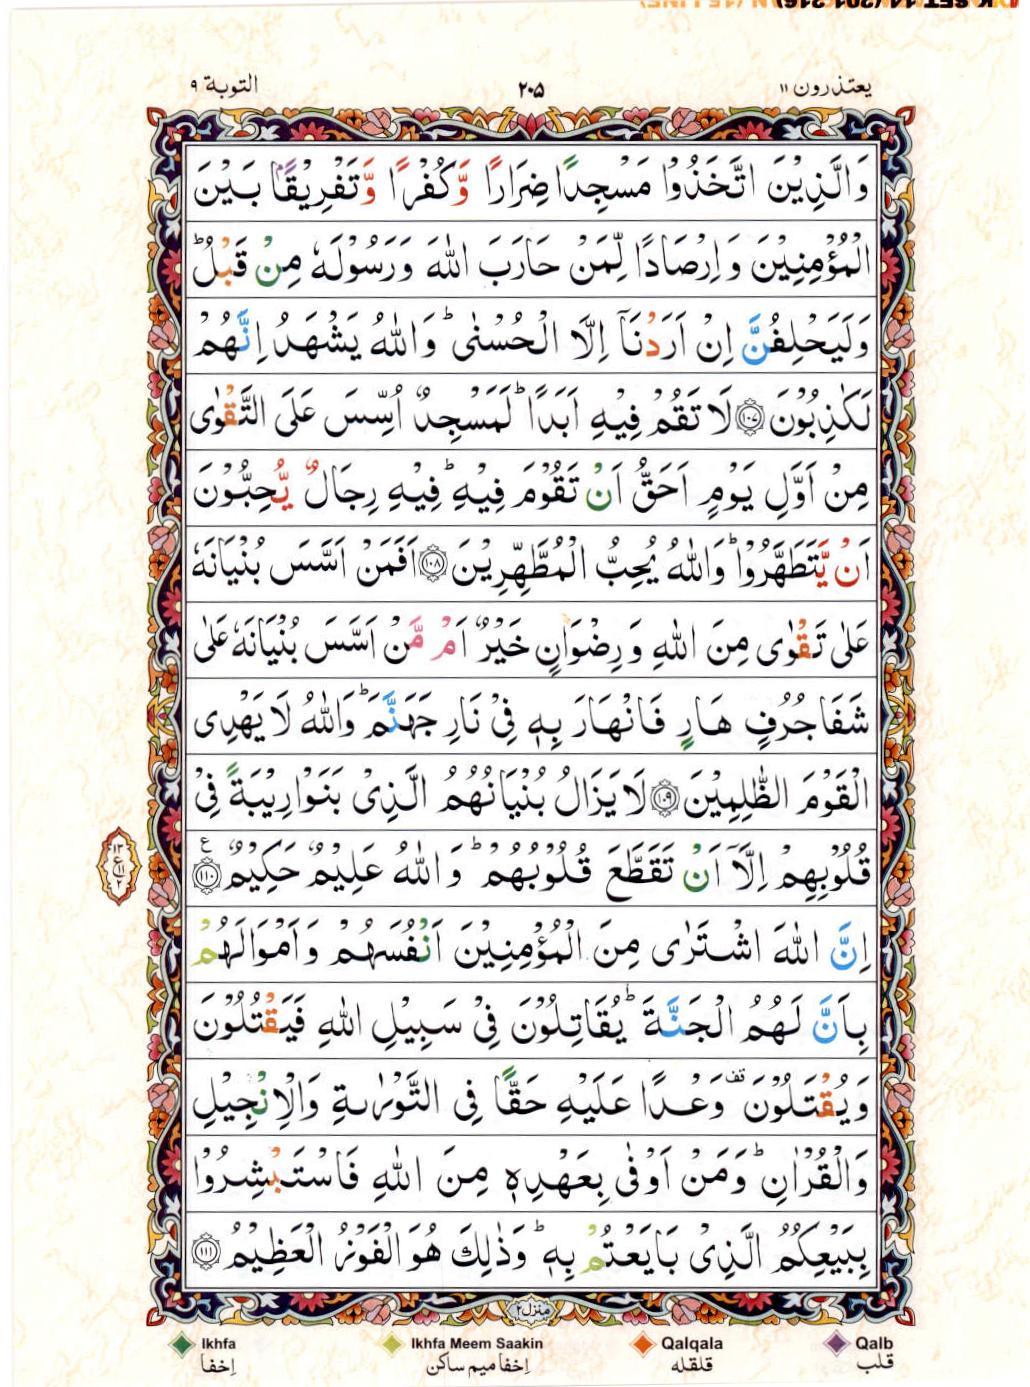 يعتذرون ١١
٢٠٥
التوبة ٩
وَالَّذِيْنَ اتَّخَذُوْا مَسْجِدًا ضِرَارًا وَّكُفْرًا وَّتَفْرِيْقًۢا بَيْنَ
الْمُؤْمِنِيْنَ وَاِرْصَادًا لِّمَنْ حَارَبَ اللّٰهَ وَرَسُوْلَهٗ مِنْ قَبْلُ ؕ
وَلَيَحْلِفُنَّ اِنْ اَرَدْنَاۤ اِلَّا الْحُسْنٰى ؕ وَاللّٰهُ يَشْهَدُ اِنَّهُمْ
لَكٰذِبُوْنَ ۝١٠٧ لَا تَقُمْ فِيْهِ اَبَدًا ؕ لَمَسْجِدٌ اُسِّسَ عَلَى التَّقْوٰى
مِنْ اَوَّلِ يَوْمٍ اَحَقُّ اَنْ تَقُوْمَ فِيْهِ ؕ فِيْهِ رِجَالٌ يُّحِبُّوْنَ
اَنْ يَّتَطَهَّرُوْا ؕ وَاللّٰهُ يُحِبُّ الْمُطَّهِّرِيْنَ ۝١٠٨ اَفَمَنْ اَسَّسَ بُنْيَانَهٗ
عَلٰى تَقْوٰى مِنَ اللّٰهِ وَرِضْوَانٍ خَيْرٌ اَمْ مَّنْ اَسَّسَ بُنْيَانَهٗ عَلٰى
شَفَا جُرُفٍ هَارٍ فَانْهَارَ بِهٖ فِيْ نَارِ جَهَنَّمَ ؕ وَاللّٰهُ لَا يَهْدِى
الْقَوْمَ الظّٰلِمِيْنَ ۝١٠٩ لَا يَزَالُ بُنْيَانُهُمُ الَّذِيْ بَنَوْا رِيْبَةً فِيْ
قُلُوْبِهِمْ اِلَّاۤ اَنْ تَقَطَّعَ قُلُوْبُهُمْ ؕ وَاللّٰهُ عَلِيْمٌ حَكِيْمٌ ۝١١٠ ع
١٣ ع ١١ ٢
اِنَّ اللّٰهَ اشْتَرٰى مِنَ الْمُؤْمِنِيْنَ اَنْفُسَهُمْ وَاَمْوَالَهُمْ
بِاَنَّ لَهُمُ الْجَنَّةَ ؕ يُقَاتِلُوْنَ فِيْ سَبِيْلِ اللّٰهِ فَيَقْتُلُوْنَ
وَيُقْتَلُوْنَ قف وَعْدًا عَلَيْهِ حَقًّا فِى التَّوْرٰىةِ وَالْاِنْجِيْلِ
وَالْقُرْاٰنِ ؕ وَمَنْ اَوْفٰى بِعَهْدِهٖ مِنَ اللّٰهِ فَاسْتَبْشِرُوْا
بِبَيْعِكُمُ الَّذِيْ بَايَعْتُمْ بِهٖ ؕ وَذٰلِكَ هُوَ الْفَوْزُ الْعَظِيْمُ ۝١١١
منزل ٢
Ikhfa Ikhfa Meem Saakin Qalqala Qalb
اِخفا اِخفا میم ساکن قلقله قلب